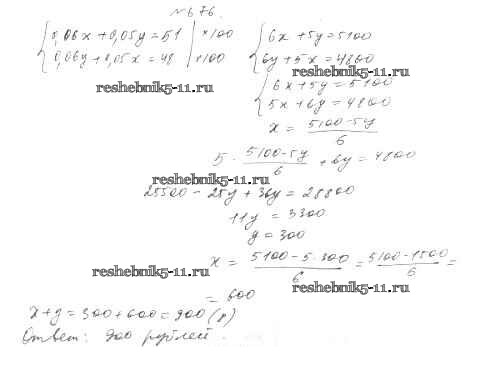 №676.
{0,06x + 0,05y = 51 | ×100
{0,06y + 0,05x = 48 | ×100
{6x + 5y = 5100
{6y + 5x = 4800
reshebnik5-11.ru
reshebnik5-11.ru
{6x + 5y = 5100
{5x + 6y = 4800
x = (5100 - 5y)/6
5 · (5100 - 5y)/6 + 6y = 4800
reshebnik5-11.ru
25500 - 25y + 36y = 28800
11y = 3300
y = 300
x = (5100 - 5·300)/6 = (5100 - 1500)/6 =
reshebnik5-11.ru
reshebnik5-11.ru
= 600
x + y = 300 + 600 = 900 (р)
Ответ: 900 рублей.